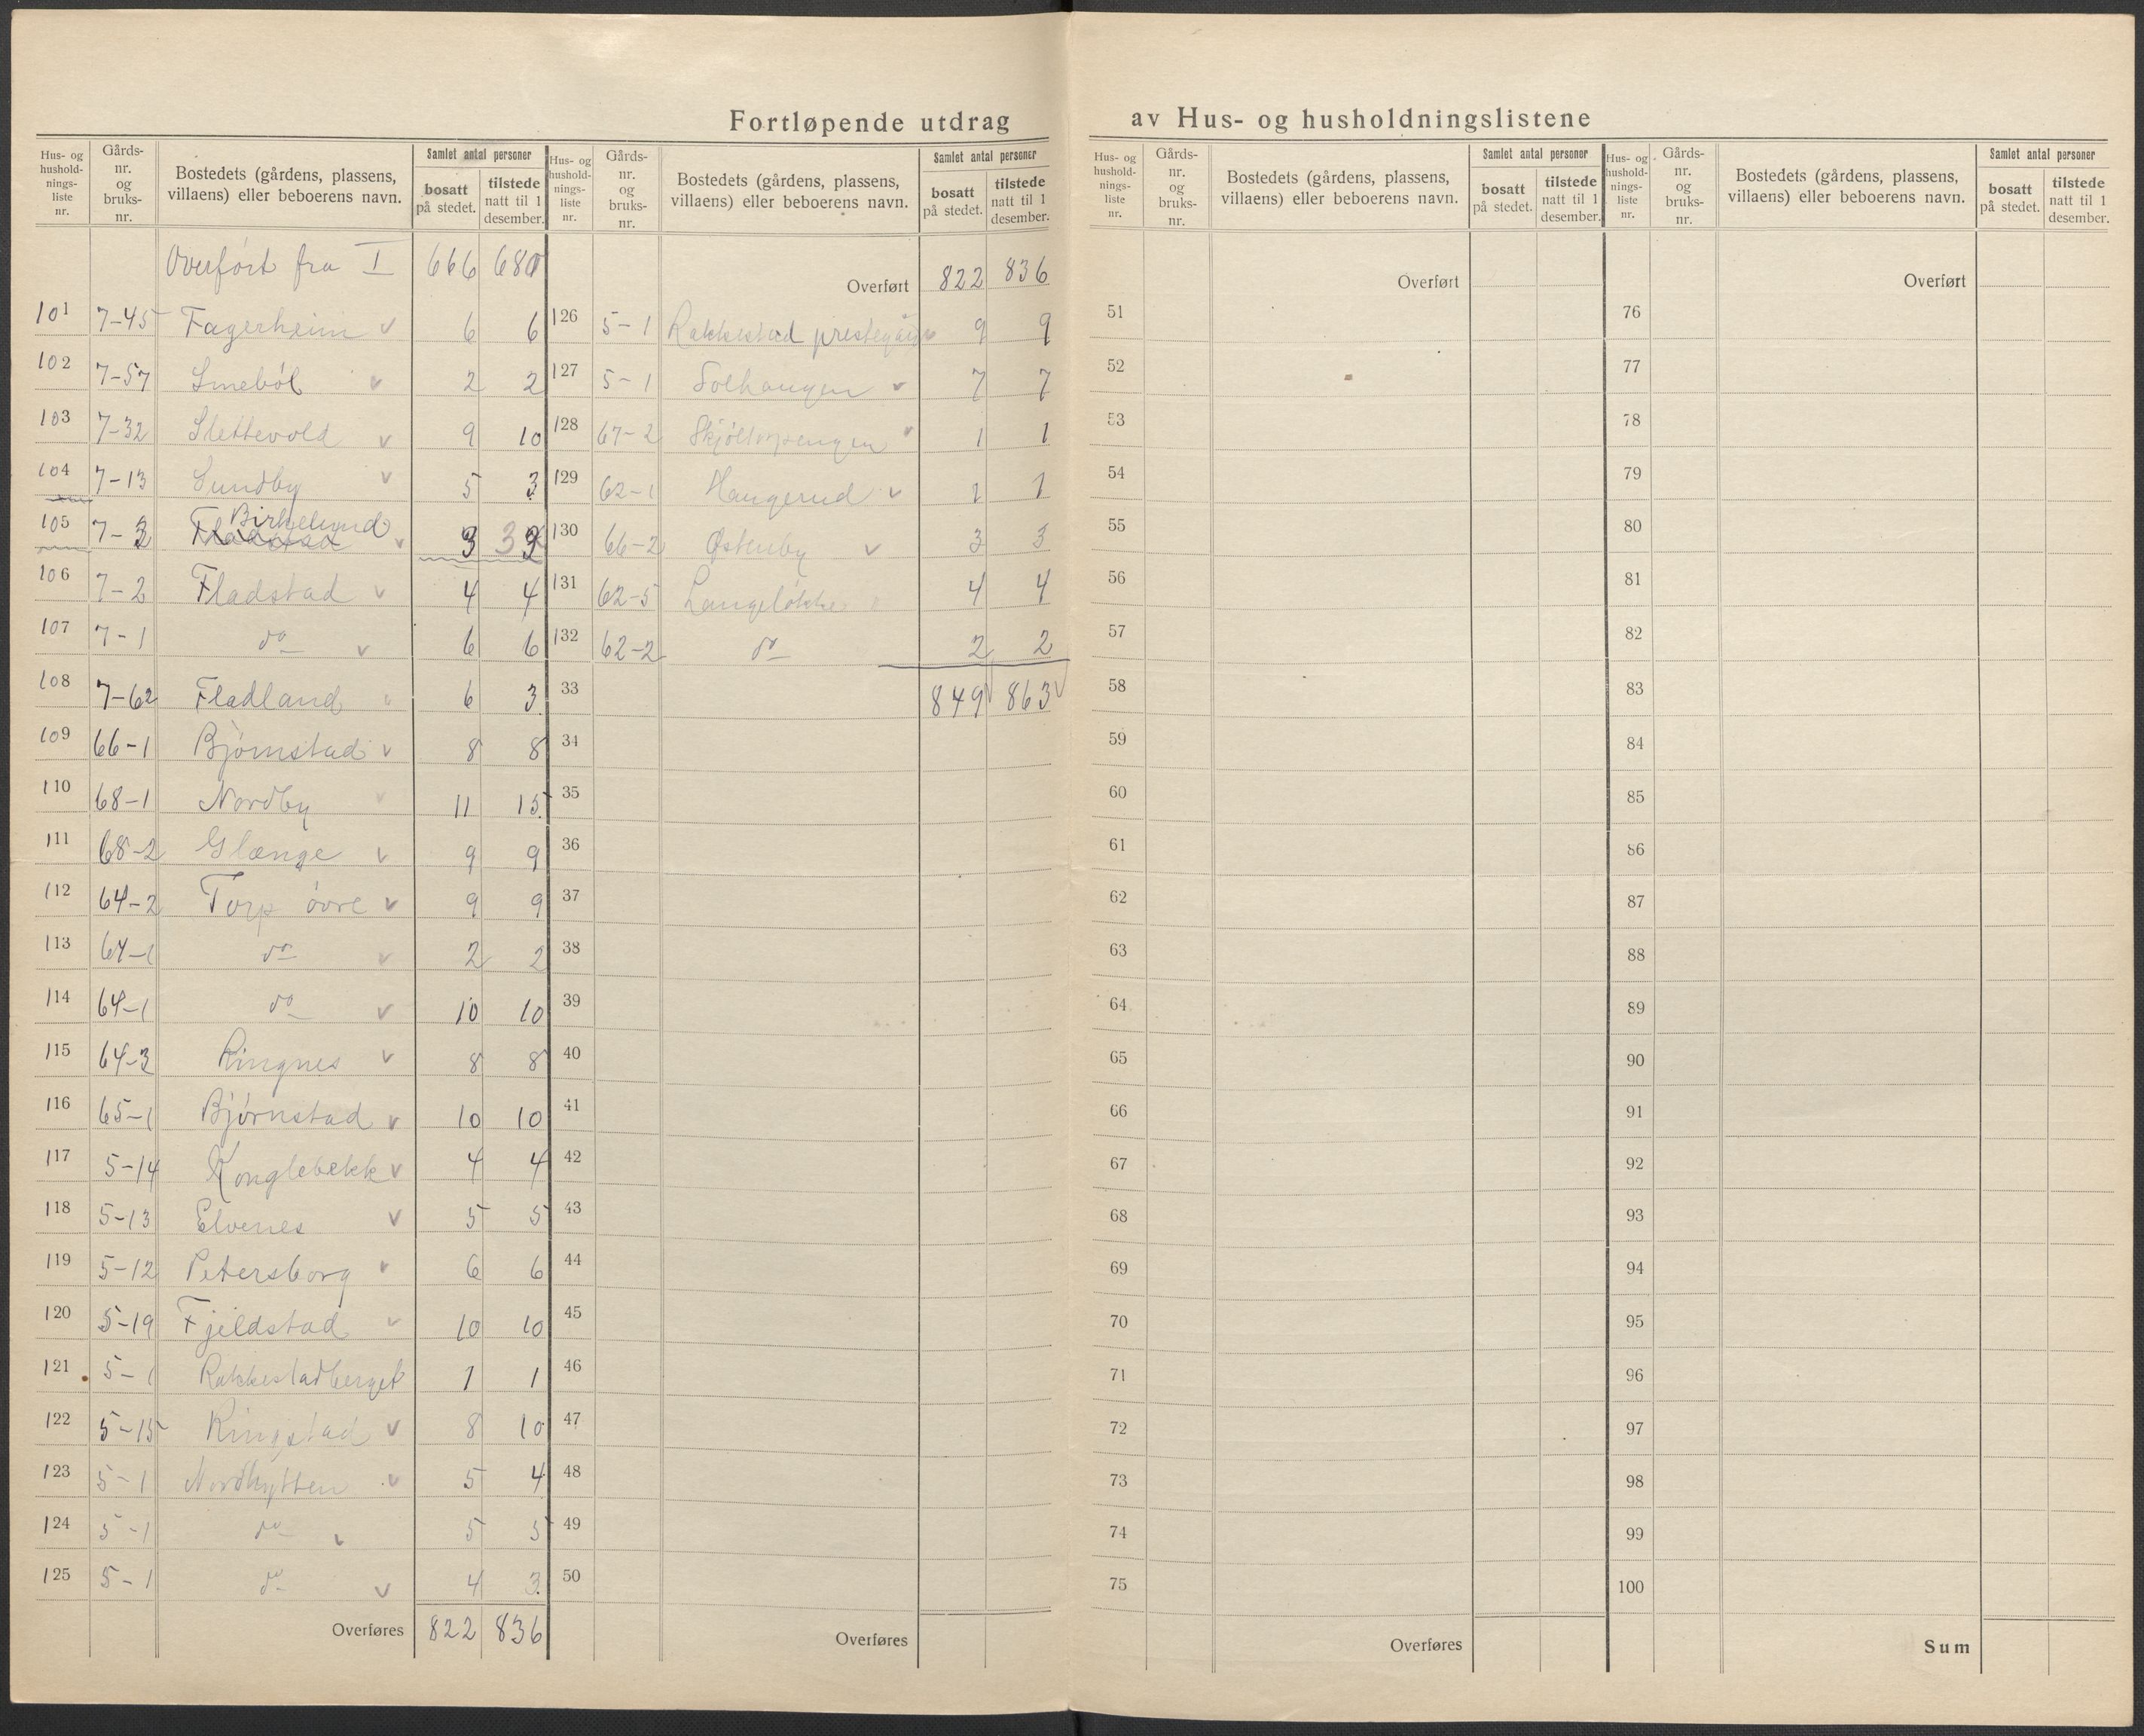 Fortløpende utdrag av Hus- og husholdningslistene
Hus- og husholdnings-liste nr. | Gårds-nr. og bruks-nr. | Bostedets (gårdens, plassens, villaens) eller beboerens navn. | Samlet antal personer bosatt på stedet. | tilstede natt til 1 desember.
Overført fra I 666 680
101 7-45 Fagerheim v 6 6
102 7-57 Smebøl v 2 2
103 7-32 Slettevold v 9 10
104 7-13 Sundby v 5 3
105 7-3 Birkelund v 3 3
106 7-2 Fladstad v 4 4
107 7-1 do v 6 6
108 7-62 Fladland 6 3
109 66-1 Bjørnstad v 8 8
110 68-1 Nordby v 11 15
111 68-2 Glænge v 9 9
112 64-2 Torp øvre v 9 9
113 64-1 do v 2 2
114 64-1 do v 10 10
115 64-3 Ringnes v 8 8
116 65-1 Bjørnstad v 10 10
117 5-14 Konglebekk v 4 4
118 5-13 Elvenes v 5 5
119 5-12 Petersborg v 6 6
120 5-19 Fjeldstad v 10 10
121 5-1 Rakkestadberget 1 1
122 5-15 Ringstad v 8 10
123 5-1 Nordhytten v 5 4
124 5-1 do v 5 5
125 5-1 do v 4 3
Overføres 822 836
Hus- og husholdnings-liste nr. | Gårds-nr. og bruks-nr. | Bostedets (gårdens, plassens, villaens) eller beboerens navn. | Samlet antal personer bosatt på stedet. | tilstede natt til 1 desember.
Overført 822 836
126 5-1 Rakkestad prestegård v 9 9
127 5-1 Solhaugen v 7 7
128 67-2 Skjøltorpengen 1 1
129 62-1 Haugerud v 1 1
130 66-2 Østenby v 3 3
131 62-5 Langeløkke 4 4
132 62-2 do 2 2
33 849 v 863 v
34
35
36
37
38
39
40
41
42
43
44
45
46
47
48
49
50
Overføres
Hus- og husholdnings-liste nr. | Gårds-nr. og bruks-nr. | Bostedets (gårdens, plassens, villaens) eller beboerens navn. | Samlet antal personer bosatt på stedet. | tilstede natt til 1 desember.
Overført
51
52
53
54
55
56
57
58
59
60
61
62
63
64
65
66
67
68
69
70
71
72
73
74
75
Overføres
Hus- og husholdnings-liste nr. | Gårds-nr. og bruks-nr. | Bostedets (gårdens, plassens, villaens) eller beboerens navn. | Samlet antal personer bosatt på stedet. | tilstede natt til 1 desember.
Overført
76
77
78
79
80
81
82
83
84
85
86
87
88
89
90
91
92
93
94
95
96
97
98
99
100
Sum